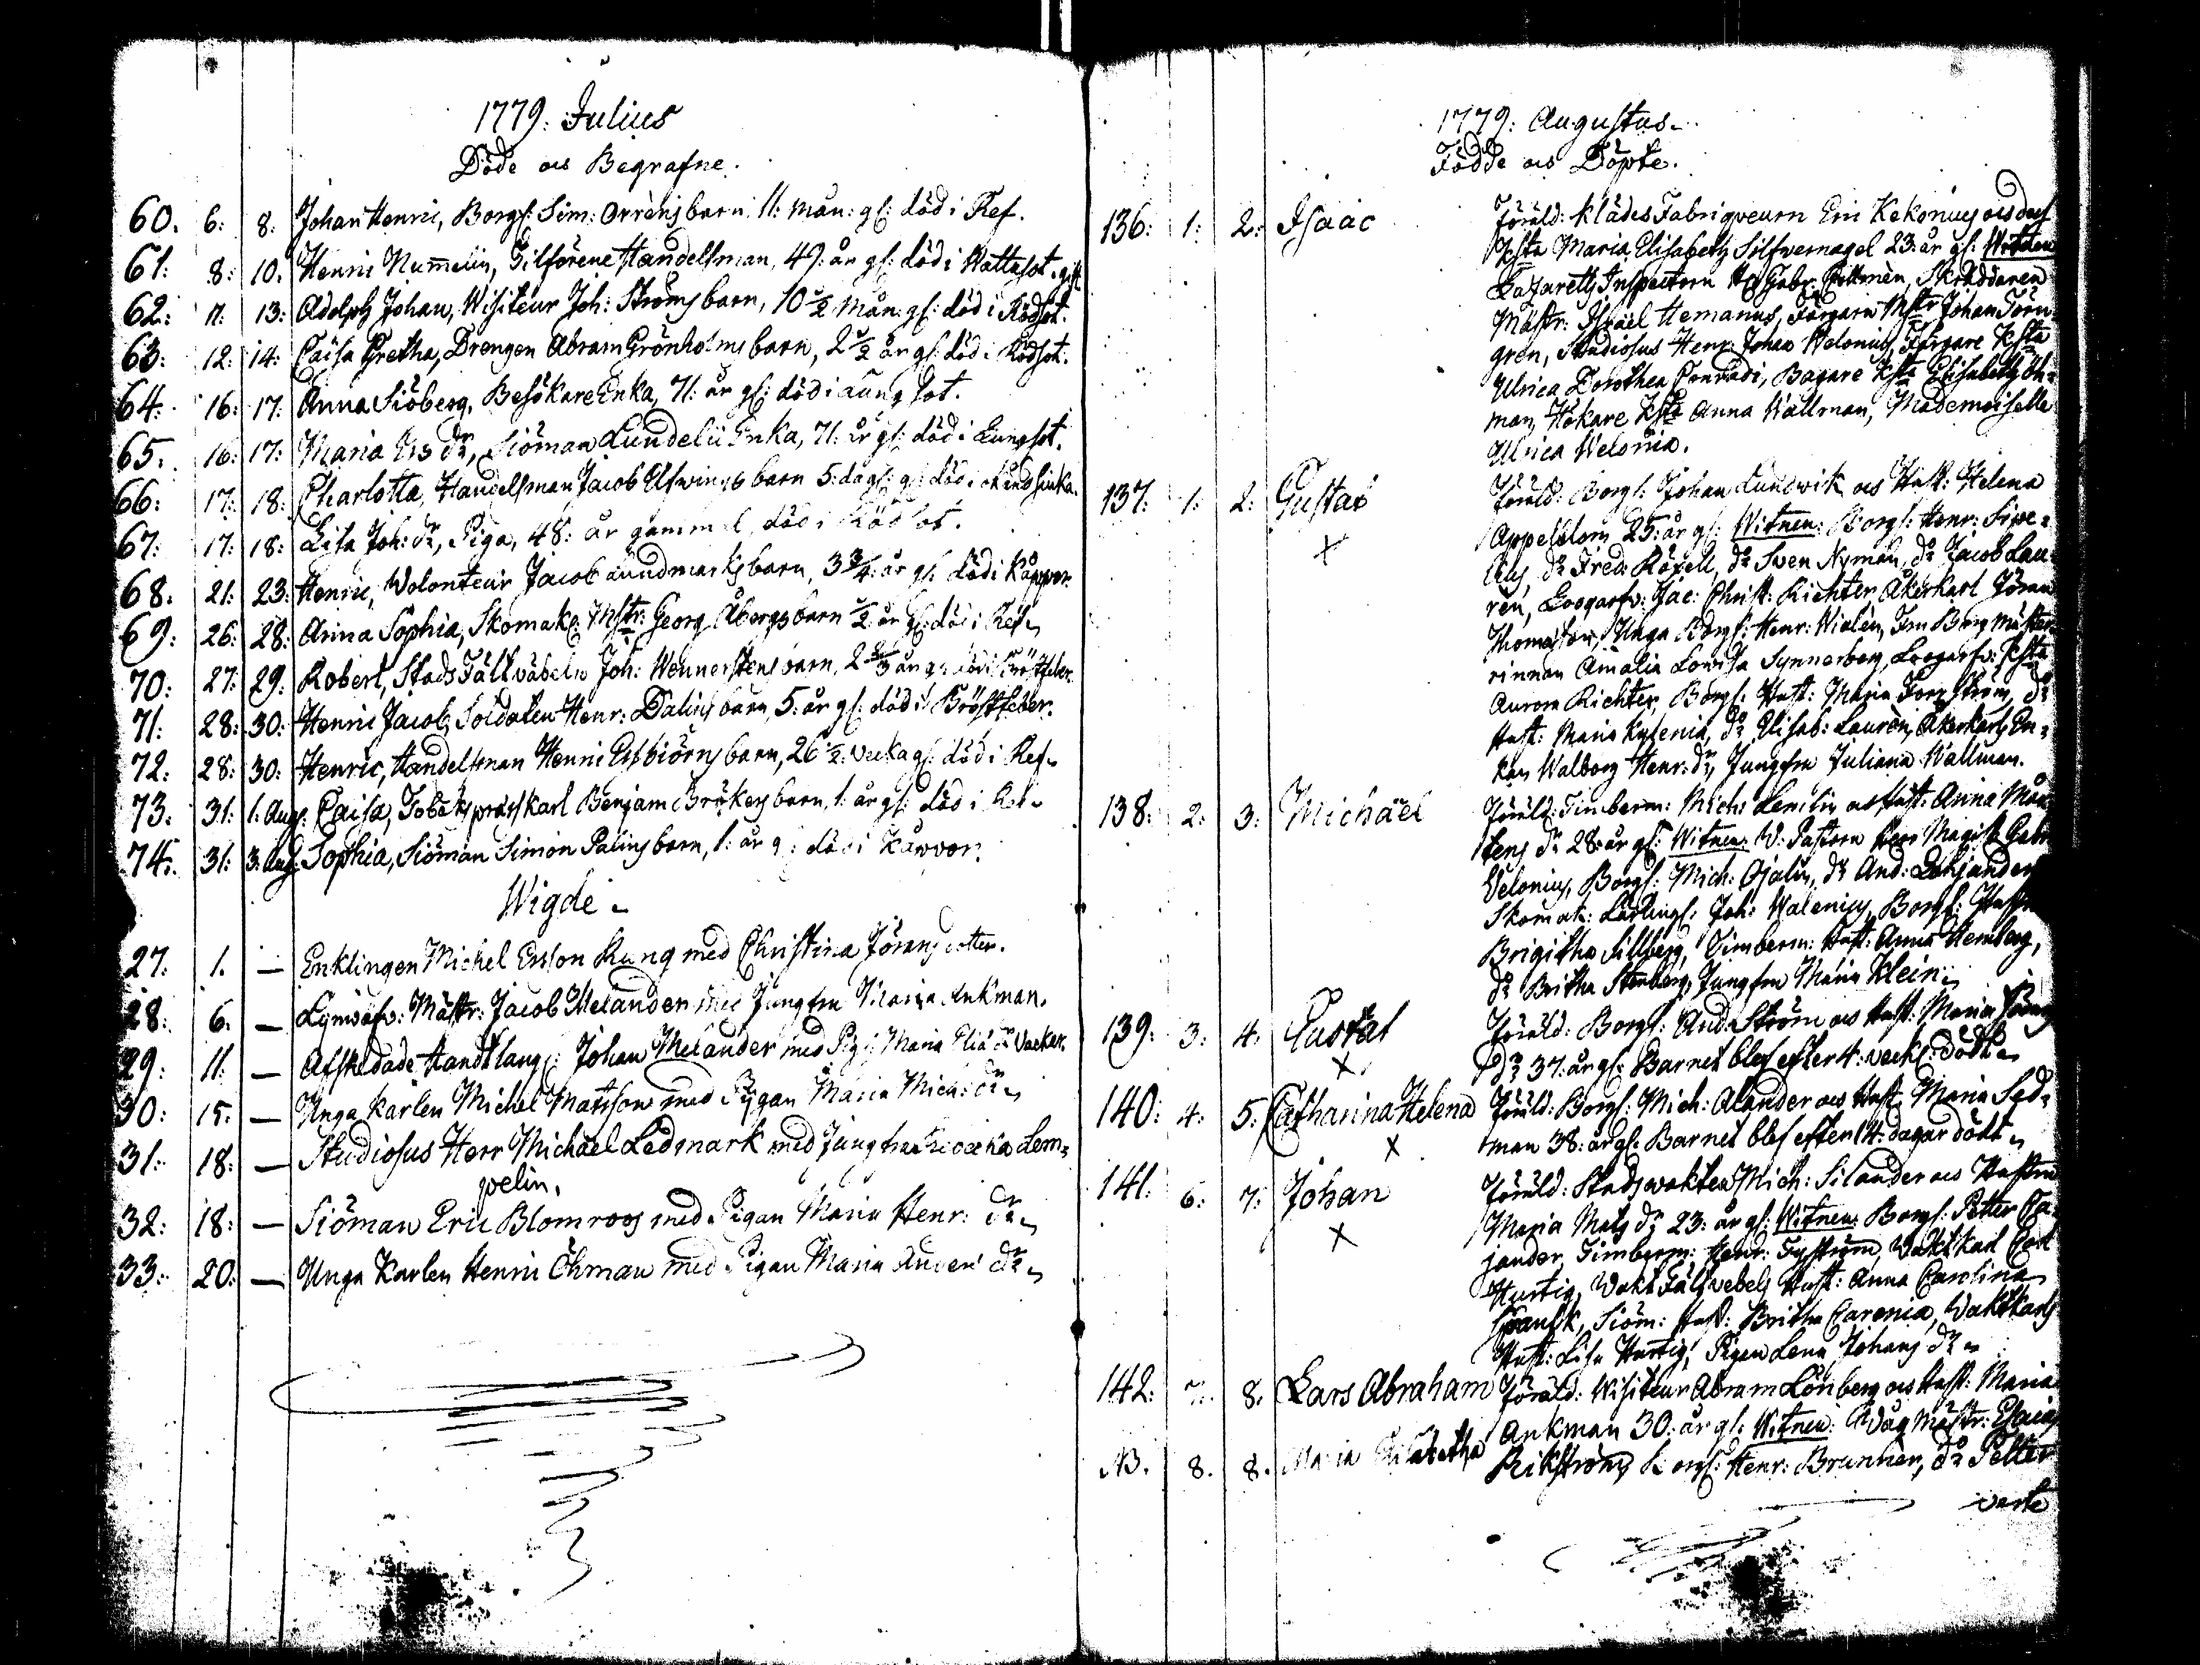 1779. Julius
Döde och Begrafne.
60. 6: 8: Johan Henric, Borgs: Sim: Orréns barn 11: mån: gl: död i Ref.
61: 8: 10: Henric Numelin, Tilförene Handelsman, 49: år gl: död i Wattusot. gift
62: 11: 13: Adolph Johan, Wisiteur Joh: Ströms barn, 10 1/2 mån: gl: död i Rödsot.
63: 12: 14: Caisa Gretha, Drengen Abram Grönholms barn, 2 1/2 år gl: död i Rödsot.
64: 16: 17: Anna Siöberg, Besökare Enka, 71: år gl: död i Lungsot.
65. 16: 17: Maria Ers dr, Siöman Lundelii Enka, 71: år gl: död i Lungsot.
66: 17: 18: Charlotta, Handelsman Jacob barn 5: dags: gl: död i
67: 17: 18: Lisa Joh: dr, Piga, 48: år gammal, död i Rödsot.
68. 21: 23: Henric, Volonteur Jacob Lundmarks barn, 3 3/4: år gl: död i Kåppor.
69: 26: 28: Anna Sophia, Skomak: Mstr: Georg Åbergs barn 1/2 år gl: död i Ref
70: 27: 29: Robert, Stads Fältväbeln Joh: Wennerstens barn, 2 2/3 år gl: död i Bröstfeber.
71: 28: 30: Henric Jacob, Soldaten Henr: Dalins barn, 5: år gl: död i Bröstfeber.
72: 28: 30: Henric, Handelsman Henric Esbiörns barn, 26 1/2: vecka gl: död i Ref
73. 31: 1: Aug: Caisa, Karl Benjam barn, 1: år gl: död i Ref
74. 31: 3. Aug: Sophia, Siöman Simon Palins barn, 1: år gl: död i Kåppor.
Wigde
27: 1. — Enklingen Michel Ersson Kung med Christina Jöransdotter.
28: 6. — Mästr: Jacob Melander med Jungfru Maria Ankman.
29: 11: — Afskedade Handtlang: Johan Melander med Pig: Maria Elia dr
30: 15: — Unga Karlen Michel Matsson med Pigan Maria Mich: dr
31: 18: — Studiosus Herr Michäel Ledmark med Jungfru Lem=
qvelin.
32: 18: — Siöman Eric Blomroos med Pigan Maria Henr: dr
33: 20: — Unga Karlen Henric Öhman med Pigan Maria Anders dr
1779: Augustus
Födde och Döpte.
136: 1: 2: Isaac Föräld: Klädes Fabriqveurn Eric Kekonius och dess
Kjsta Maria Elisabeth Silfvernagel 23: år gl: Witnen
Lazaretts Inspectorn Hr Gabr: Skräddaren
Mästr: Israël Hemanus, Färgarn Mstr Johan Törn=
gren, Studiosus Henr: Johan Welonius, Färgare Kjsta
Ulrica Dorothea Conradi, Bagare Kjsta Elisabeth Öh=
man, Hökare Kjsta Anna Wallman, Mademoiselle
Ulrica Welonia.
137: 1: 2: Gustaf Föräld: Borgs: Johan Lundwik och Hust: Helena
X
Appelblom 25: år gl: Witnen: Borgs: Henr: Sipe=
lius, do Fred: do Sven Nyman, do Jacob Lau=
rén, Jac: Christ: Richter, Åkerkarl Jöran
Thomasson, Unga Borgs: Henr: Wialén, Fru Borgmäster=
rinnan Amalia Lowisa Synnerberg, Kjsta
Aurora Richter, Borgs: Hust: Maria Forsström, do
Hust: Maria Kylenia, do Elisab: Laurén, Åkerkarls En=
kan Walborg Henr: dr, Jungfru Juliana Wallman.
138: 2: 3: Michäel Föräld: Timberm: Mich: och Hust: Anna Mår=
tens dr 28: år gl: Witnen: V: Pastorn Herr Magist: Gabr:
Welonius, Borgs: Mich: Ojalin, do And:
Skomak: Lärlings: Joh: Walenius, Borgs: Hustru
Brigitha Sillberg, Timberm: Hust: Anna Hemberg,
do Britha Stenberg, Jungfru Maria Klein
139: 3: 4: Gustaf Föräld: Borgs: And: Ström och Hust: Maria
X
dr 37: år gl: Barnet blef efter 4: veck: dödt
140: 4: 5: Catharina Helena Föräld: Borgs: Mich: Alander och Hust: Maria Sed=
X
man 38: år gl: Barnet blef efter 14: dagar dödt
141: 6: 7: Johan Föräld: Stadswakten Mich: Silander och Hustru
X
Maria Mats dr 23: år gl: Witnen: Borgs: Petter Ca=
jander, Timberm: Henr: Fyström, Waktkarl Carl
Hurtig, Wakt Fältvebels Hust: Anna Carolina
Siöm: Hust: Britha Carenia, Waktkarls
Hust: Lisa Hurtig, Pigan Lena Johans dr
142: 7: 8: Lars Abraham Föräld: Wisiteur Abram Lönberg och Hust: Maria
Ankman 30: år gl: Witnen: Wåg Mästr: Esaias
NB. 8. 8. Maria Elisabetha Rikström, Borgs: Henr: Brunnér, do Petter
verte